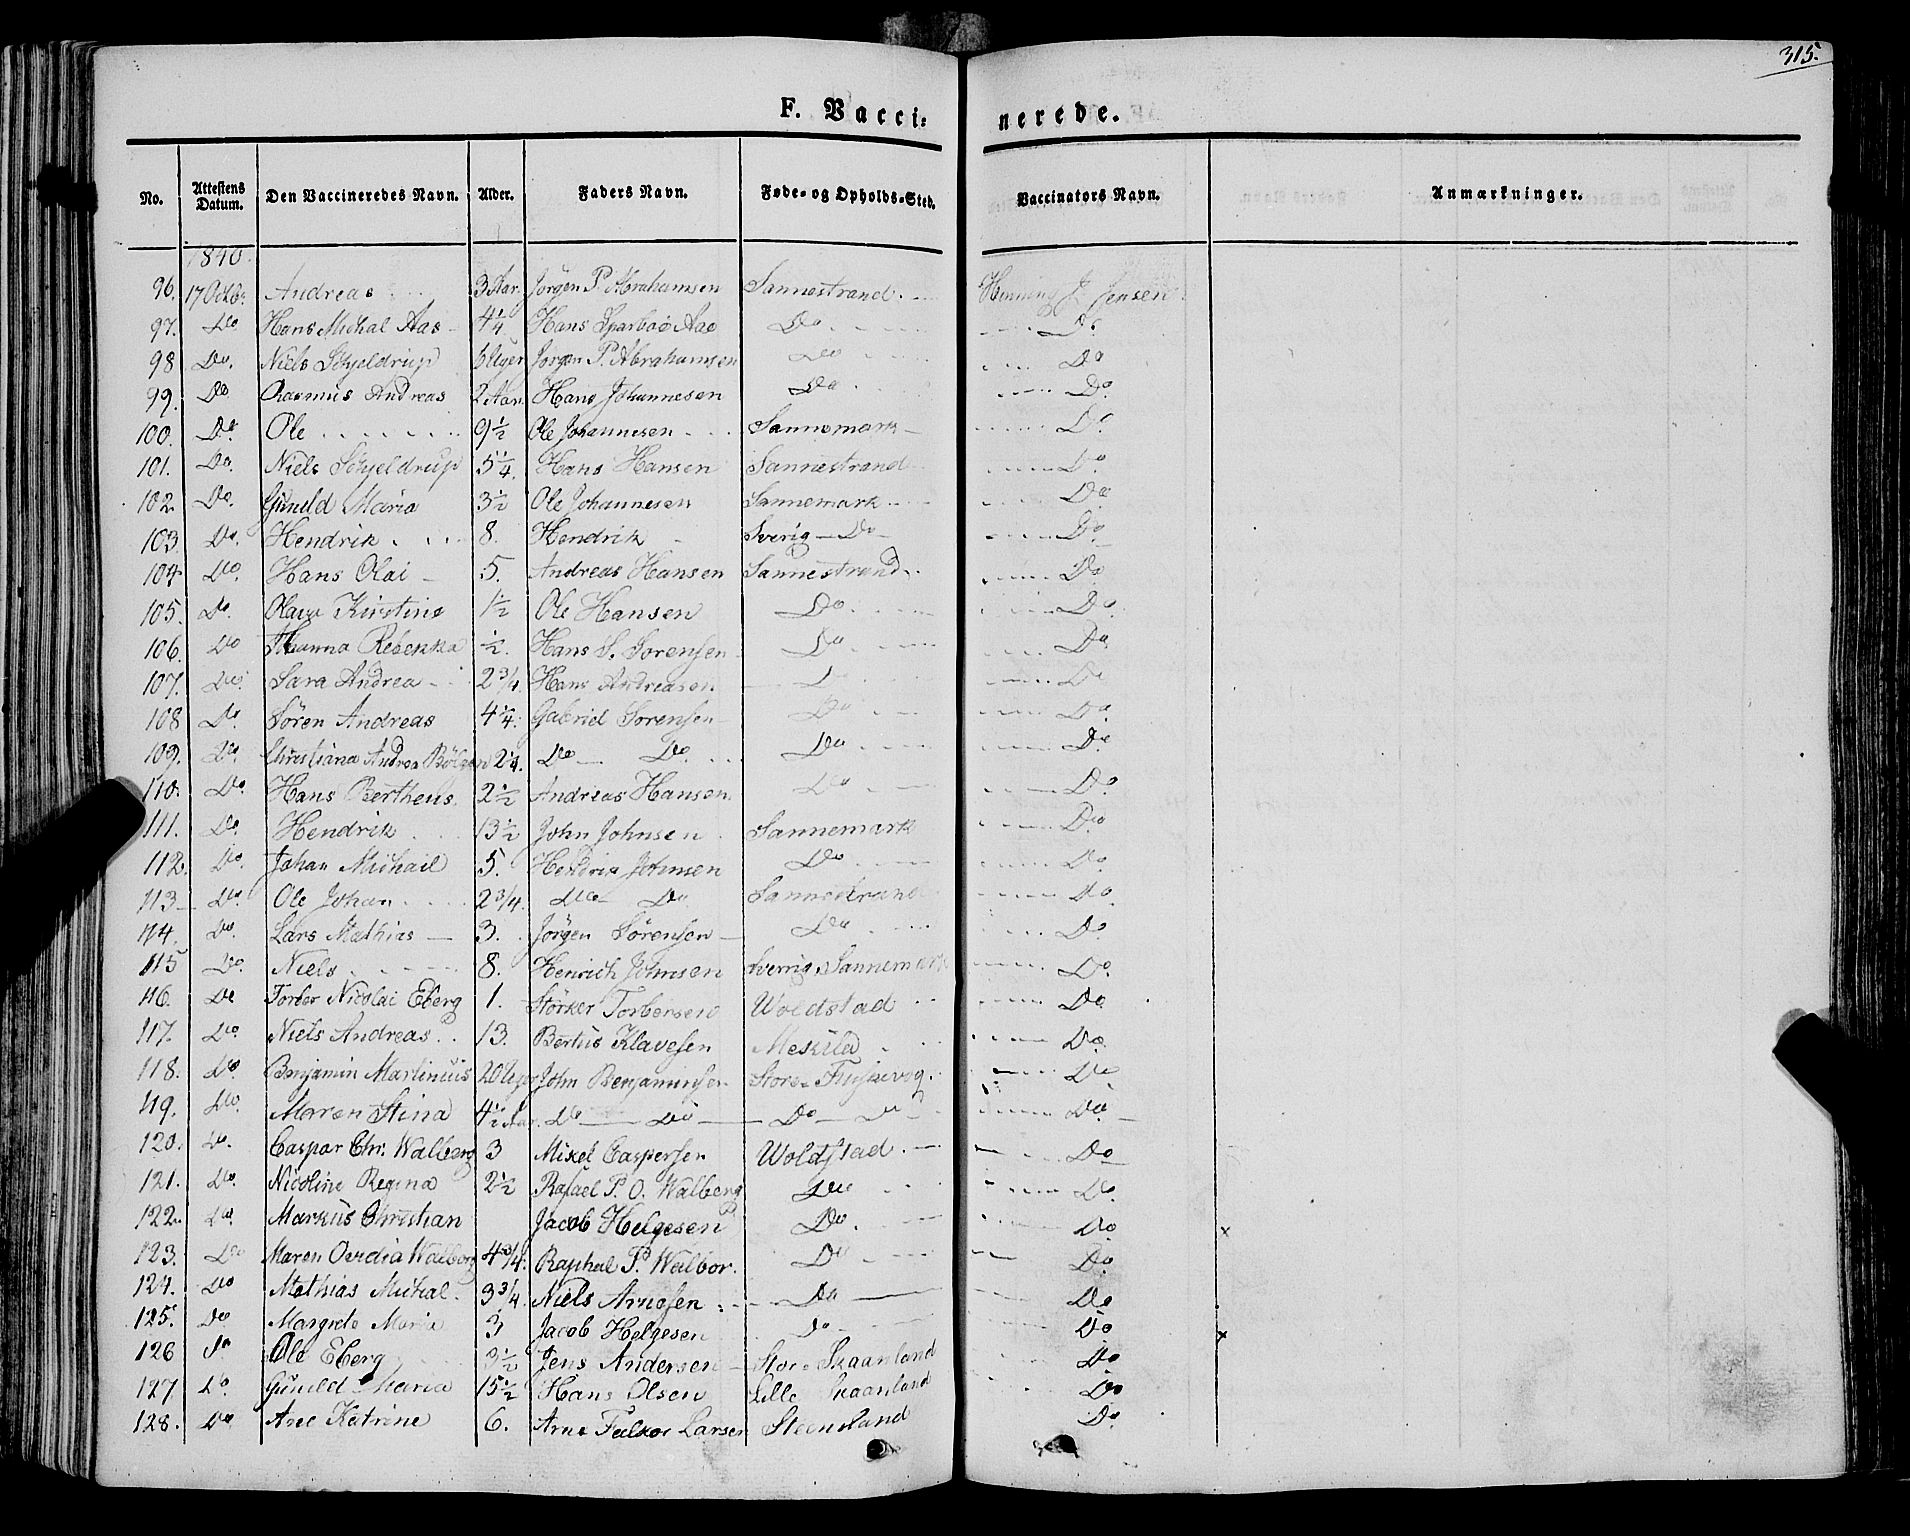 315.
F. Vacci: nerede.
No. Attestens Datum. Den Vaccineredes Navn. Alder. Faders Navn. Føde- og Opholds-Sted. Vaccinators Navn. Anmærkninger.
1840.
96. 17 Octbr. Andreas 3 Aar. Jörgen P. Abrahamsen Sannestrand. Henning J. Jensen
97. Do Hans Michal Aas 4 1/4 Hans Sparboe Aas Do Do
98 Do. Niels Schjeldrup 6 Uger Jorgen P. Abrahamsen Do Do
99. Do Rasmus Andreas 2 Aar. Hans Johannesen Do Do
100. Do. Ole 9 1/2 Ole Johannesen Sannemark Do
101. Do. Niels Schjeldrup 5 1/4. Hans Hansen Sannestrand Do.
102. Do. Gunild Maria 3 1/2 Ole Johannesen Sannemark Do
103. Do. Hendrik 8. Hendrik Sverig - Do Do
104 Do. Hans Olai 5. Andreas Hansen Sannestrand Do
105. Do Kirstine 1 1/2 Ole Hansen Do. Do.
106. Do Johanna Rebekka 1/2. Hans S. Sorensen Do Do
107. Do. Sara Andrea 2 3/4. Hans Andreasen Do Do
108 Do. Sören Andreas 4 1/4. Gabriel Sorensen Do Do.
109. Do Christiana Andrea 2 1/4. Do Do. Do Do
110. Do. Hans Bertheus 2 1/2 Andreas Hansen. Do Do
111. Do. Hendrik 13 1/2 John Johnsen Sannemark Do
112. Do. Johan Michail 5. Hendrik Johnsen Do Do.
113 Do. Ole Johan 2 3/4. Do Do Sannestrand Do
114. Do. Lars Mathias 3. Jörgen Sörensen Do Do.
115 Do. Niels 8. Henrich Johnsen Sverrig Sannemark Do.
116. Do Torber Nicolai Eberg 1. Störker Torbersen Woldstad Do.
117. Do Niels Andreas 13. Bertus Klavesen Do.
118. Do. Benjamin Martinuus 20 Uger John Benjaminsen Store Do
119. Do. Maren Stina 4 1/2 Aar. Do Do Do Do Do.
120. Do. Caspar Chr. Walberg 3 Mikel Caspersen Woldstad. Do
121. Do. Nicoline Regina 2 1/2 Rafael P. O. Walberg Do Do.
122. Do. Markus Christian Jacob Helgesen Do. Do x
123. Do Maren Walborg 4 3/4. Raphal P. Walbor. Do Do.
124. Do Mathias Michal. 3 3/4. Niels Do Do
125. Do Margrete Maria 3 Jacob Helgesen Do Do x
126 Do Ole Eberg 3 1/2 Jens Andersen Store Skaanland Do
127 Do. Gunild Maria 15 1/2 Hans Olsen Lille Skaanland Do
128. Do Ane Katrine 6. Arne Falkor Larsen Steensland Do.